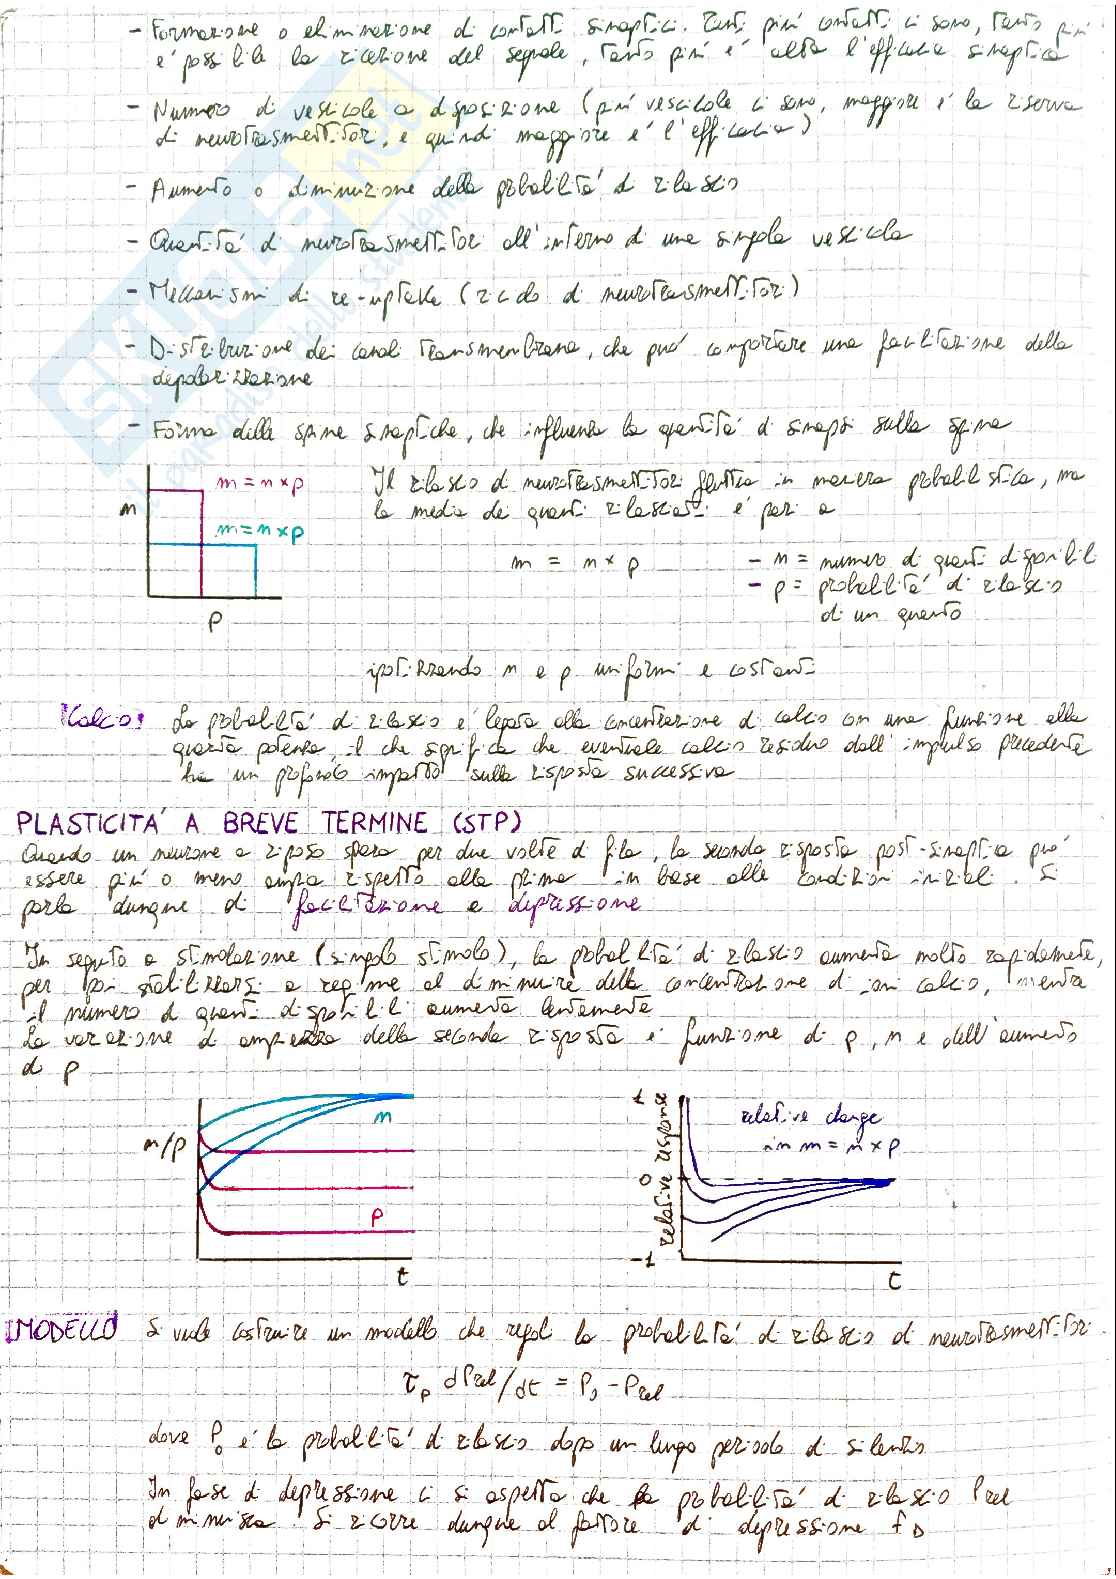 - Formazione o eliminazione di contatti sinaptici. Tanti più contatti ci sono, tanto più
è possibile la ricezione del segnale, tanto più è alta l'efficacia sinaptica
- Numero di vescicole a disposizione (più vescicole ci sono, maggiore è la riserva
di neurotrasmettitori, e quindi maggiore è l'efficacia)
- Aumento o diminuzione della probabilità di rilascio
- Quantità di neurotrasmettitori all'interno di una singola vescicola
- Meccanismi di re-uptake (riciclo di neurotrasmettitori)
- Distribuzione dei canali transmembrana, che può comportare una facilitazione della
depolarizzazione
- Forma delle spine sinaptiche, che influenza la quantità di sinapsi sulla spina
m = n × p
n
m = n × p
p
Il rilascio di neurotrasmettitori fluttua in maniera probabilistica, ma
la media dei quanti rilasciati è pari a
m = n × p
- n = numero di quanti disponibili
- p = probabilità di rilascio
di un quanto
ipotizzando n e p uniformi e costanti
!Calcio! La probabilità di rilascio è legata alla concentrazione di calcio con una funzione alla
quarta potenza, il che significa che eventuale calcio residuo dall'impulso precedente
ha un profondo impatto sulla risposta successiva
PLASTICITA' A BREVE TERMINE (STP)
Quando un neurone a riposo spara per due volte di fila, la seconda risposta post-sinaptica può
essere più o meno ampia rispetto alla prima in base alle condizioni iniziali. Si
parla dunque di facilitazione e depressione
In seguito a stimolazione (singolo stimolo), la probabilità di rilascio aumenta molto rapidamente,
per poi stabilizzarsi a regime al diminuire della concentrazione di ioni calcio, mentre
il numero di quanti disponibili aumenta lentamente
La variazione di ampiezza della seconda risposta è funzione di p, n e dell'aumento
di p
n/p
n
p
t
relative response
1
0
-1
relative change
in m = n × p
t
!MODELLO! Si vuole costruire un modello che regoli la probabilità di rilascio di neurotrasmettitori
τp dPrel/dt = P0 - Prel
dove P0 è la probabilità di rilascio dopo un lungo periodo di silenzio
In fase di depressione ci si aspetta che la probabilità di rilascio Prel
diminuisca. Si ricorre dunque al fattore di depressione fD